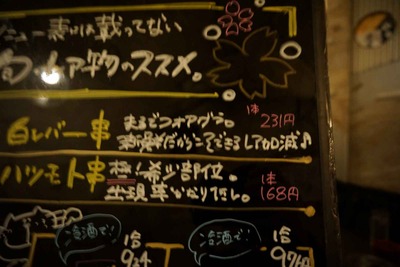 メニュー表には載ってない
旬・レア物のススメ。
白レバー串 まるでフォアグラ。 1本 231円
新鮮だからこそできるレアな加減♪
ハツモト串 極!希少部位。
出現率かなりたし。 1本 168円
冷酒で! 1合
冷酒で! 1合